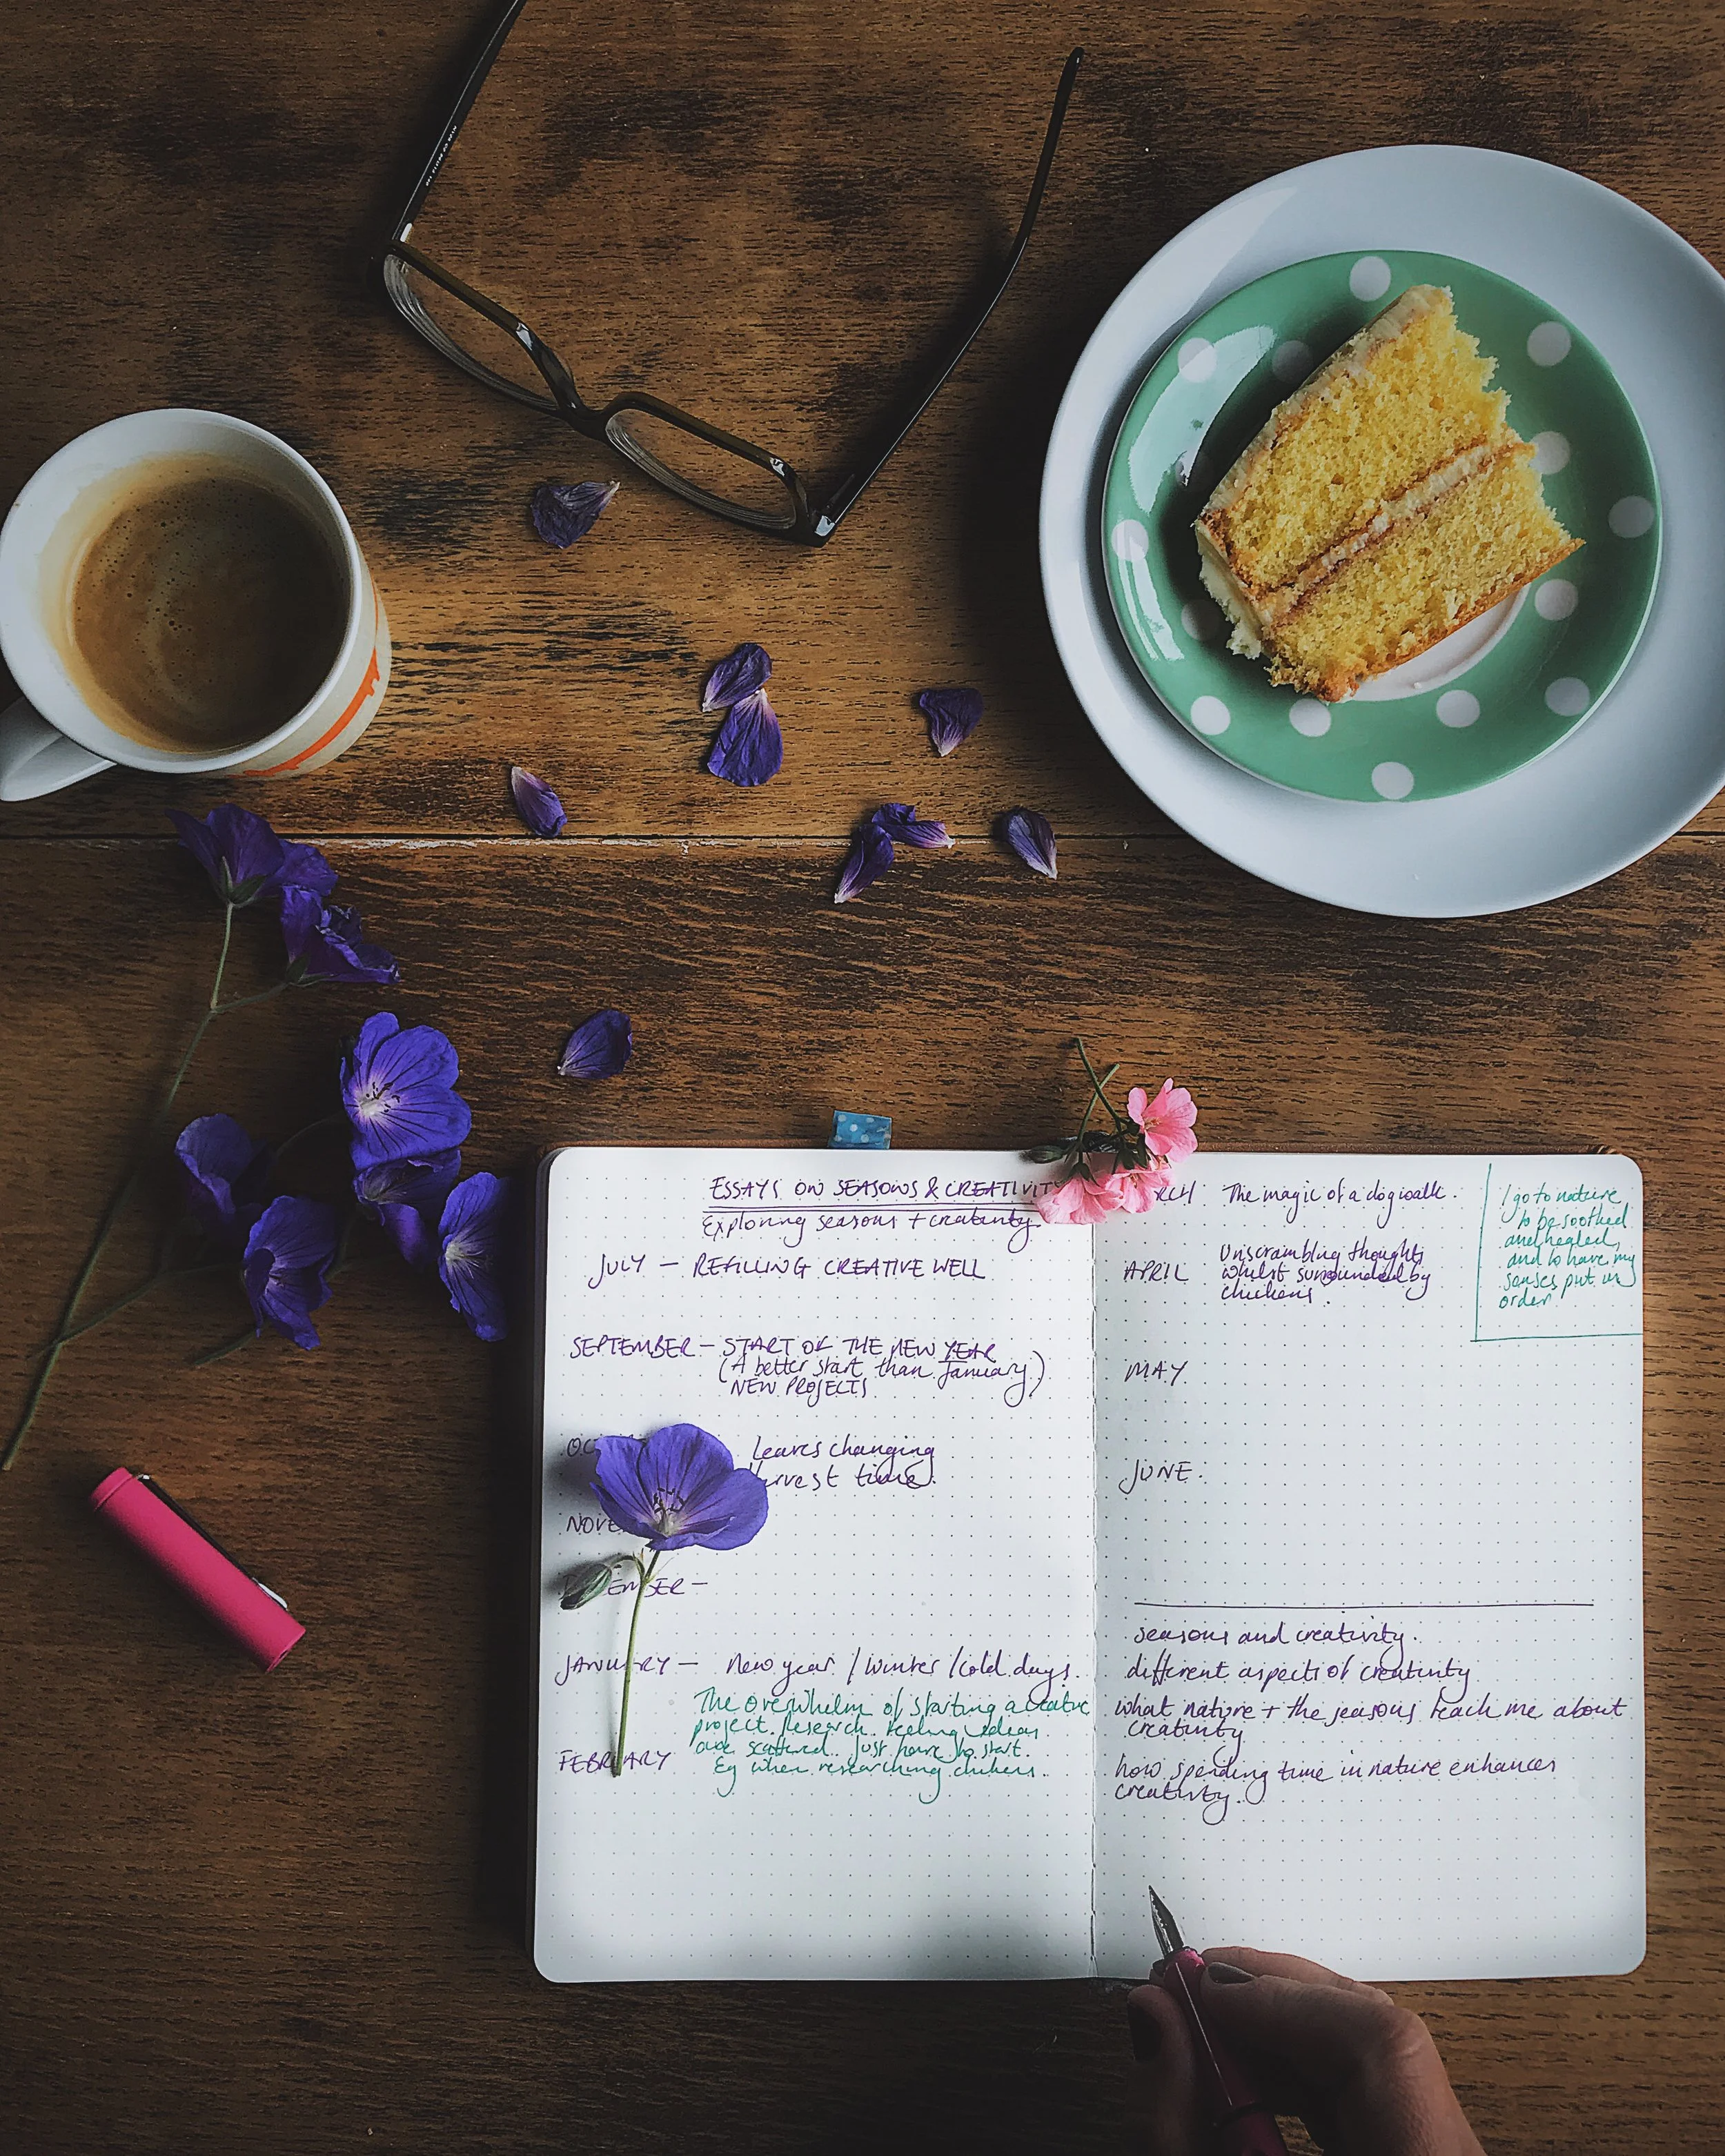 ESSAYS ON SEASONS & CREATIVITY
Exploring seasons + creativity.
JULY — REFILLING CREATIVE WELL
SEPTEMBER — START OF THE NEW YEAR
(A better start than January)
NEW PROJECTS
OC
Leaves changing
rvest time.
NOVE
EMBER —
JANUARY — New year / Winter / Cold days.
The overwhelm of starting a creative
project. Research. Feeling ideas
are scattered. Just have to start.
FEBRUARY
Eg when researching chickens.
RCH The magic of a dog walk.
APRIL
Unscrambling thoughts
whilst surrounded by
chickens.
I go to nature
to be soothed
and healed,
and to have my
senses put in
order
MAY
JUNE.
seasons and creativity.
different aspects of creativity
what nature + the seasons teach me about
creativity
how spending time in nature enhances
creativity.